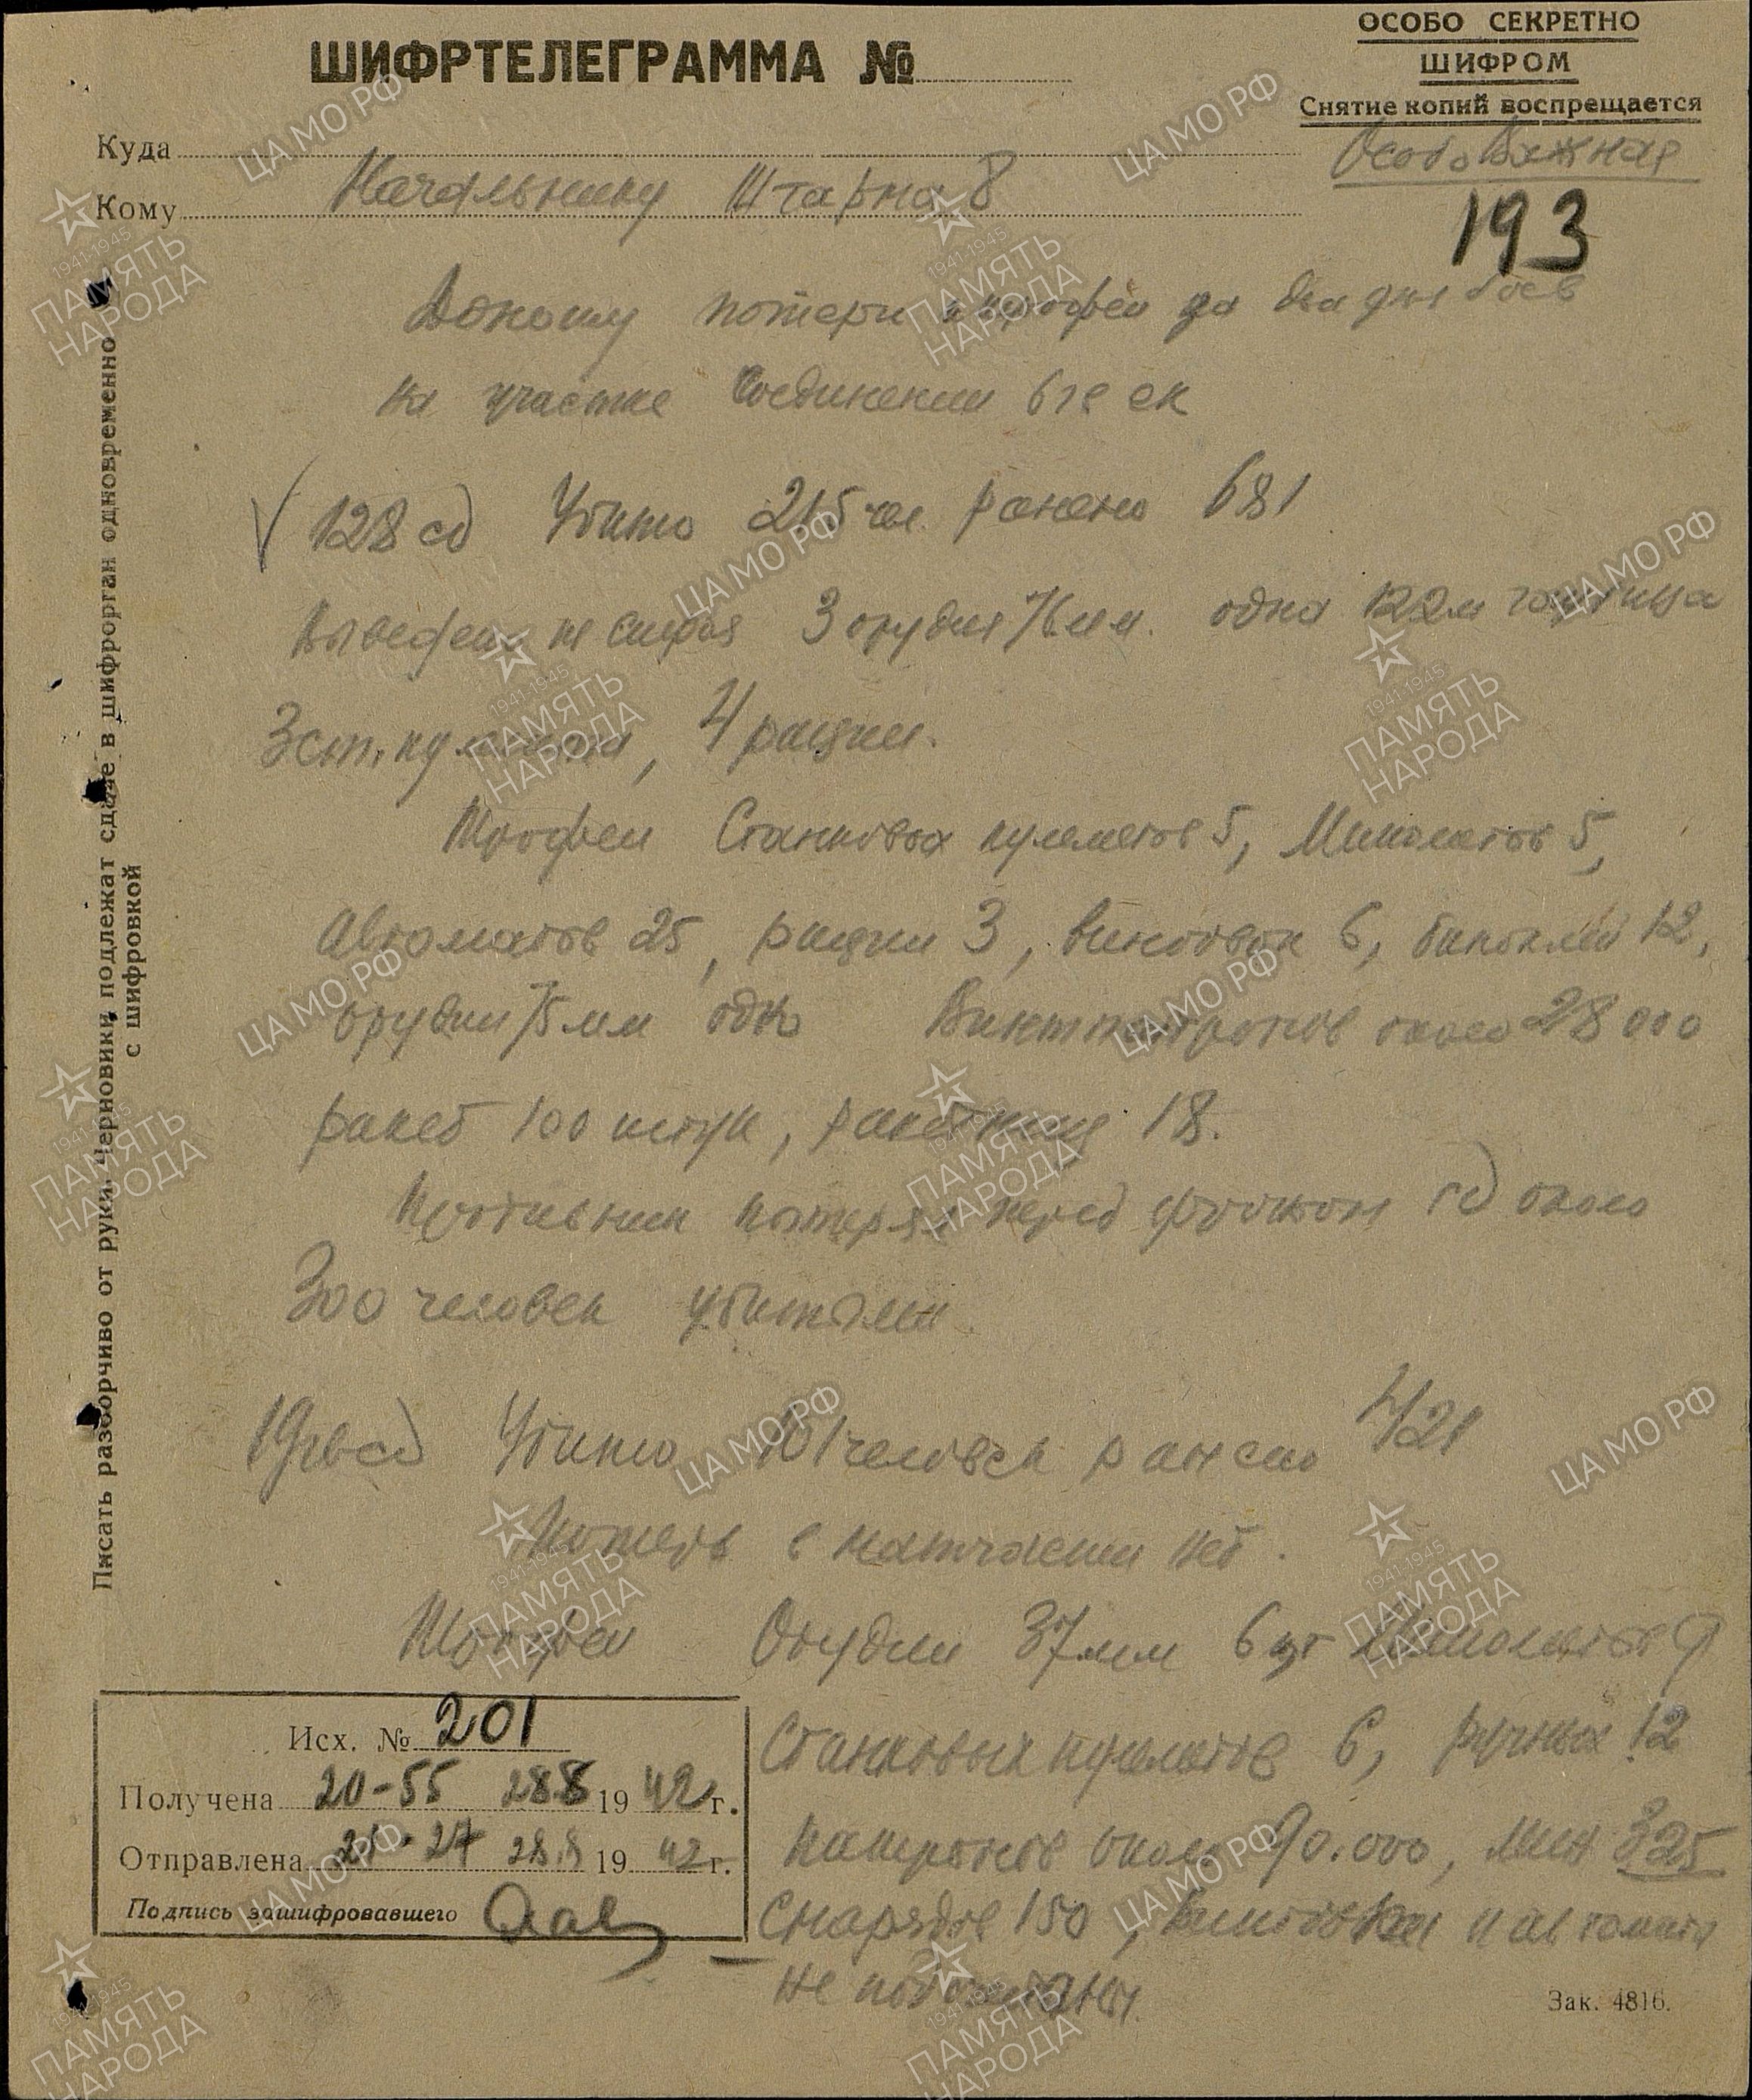 ОСОБО СЕКРЕТНО
ШИФРОМ
Снятие копий воспрещается
ШИФРТЕЛЕГРАММА №
Особо Важная
193
Куда
Кому Начальнику Штарма 8
Доношу потери и трофеи за два дня боев
на участке соединения 6 гв ск
128 сд Убито 215 чел. ранено 681
Выведено из строя 3 орудия 76 мм. одна 122 м гаубица
3 ст. пулемета, 4 рации.
Трофеи Станковых пулеметов 5, Минометов 5,
автоматов 25, рации 3, винтовок 6, биноклей 12,
орудий 75 мм одно Винт патронов около 28 000
ракет 100 штук, ракетниц 18.
Противник потерял перед фронтом сд около
300 человек убитыми.
19 гв сд Убито 101 человек ранено 421
Потерь в матчасти нет.
Трофеи Орудий 37 мм 6 шт Минометов 9
Станковых пулеметов 6, ручных 12
патронов около 90.000, мин 325
Снарядов 150, винтовки и автоматы
не подсчитаны.
Исх. № 201
Получена 20-55 28 8 1942 г.
Отправлена 21-27 28.8 1942 г.
Подпись зашифровавшего
Зак. 4816.
Писать разборчиво от руки. Черновики подлежат сдаче в шифрорган одновременно
с шифровкой
ЦА МО РФ
1941-1945
ПАМЯТЬ
НАРОДА